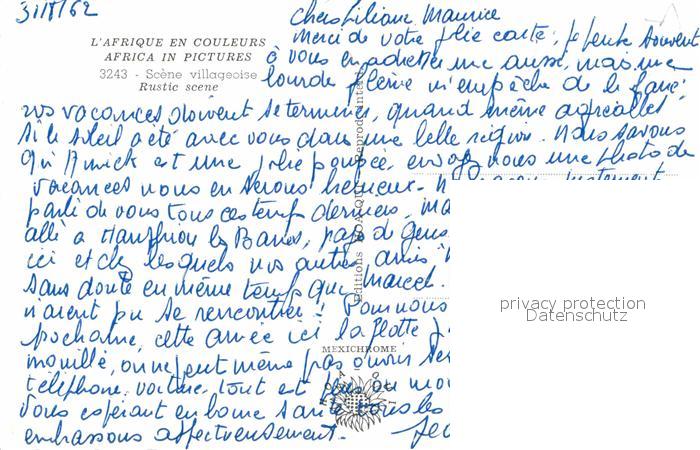 31/8/62
Chers Liliane Maurice
Merci de votre jolie carte, je pense souvent
L'AFRIQUE EN COULEURS
AFRICA IN PICTURES
3243 - Scène villageoise
Rustic scene
à vous en adresser une aussi, mais une
lourde flème m'empêche de le faire
vos vacances doivent se terminer, quand même agréables
si le soleil a été avec vous dans une belle région. Nous savons
qu'Annick est une jolie poupée, envoyez nous une photo de
vacances nous en serons heureux.
parlé de vous tous ces temps derniers,
allé à les Bains, pas de gens
ici et chez lesquels vos autres amis
sans doute en même temps que Marcel.
n'aient pu se rencontrer! Pour nous
prochaine, cette année ici la flotte
mouillé, on ne peut même pas ouvrir
téléphone, voiture, tout est
Vous espérant en bonne santé tous les
embrassons affectueusement.
Editions HOA-QUI
Reproduction interdite
MEXICHROME
privacy protection
Datenschutz